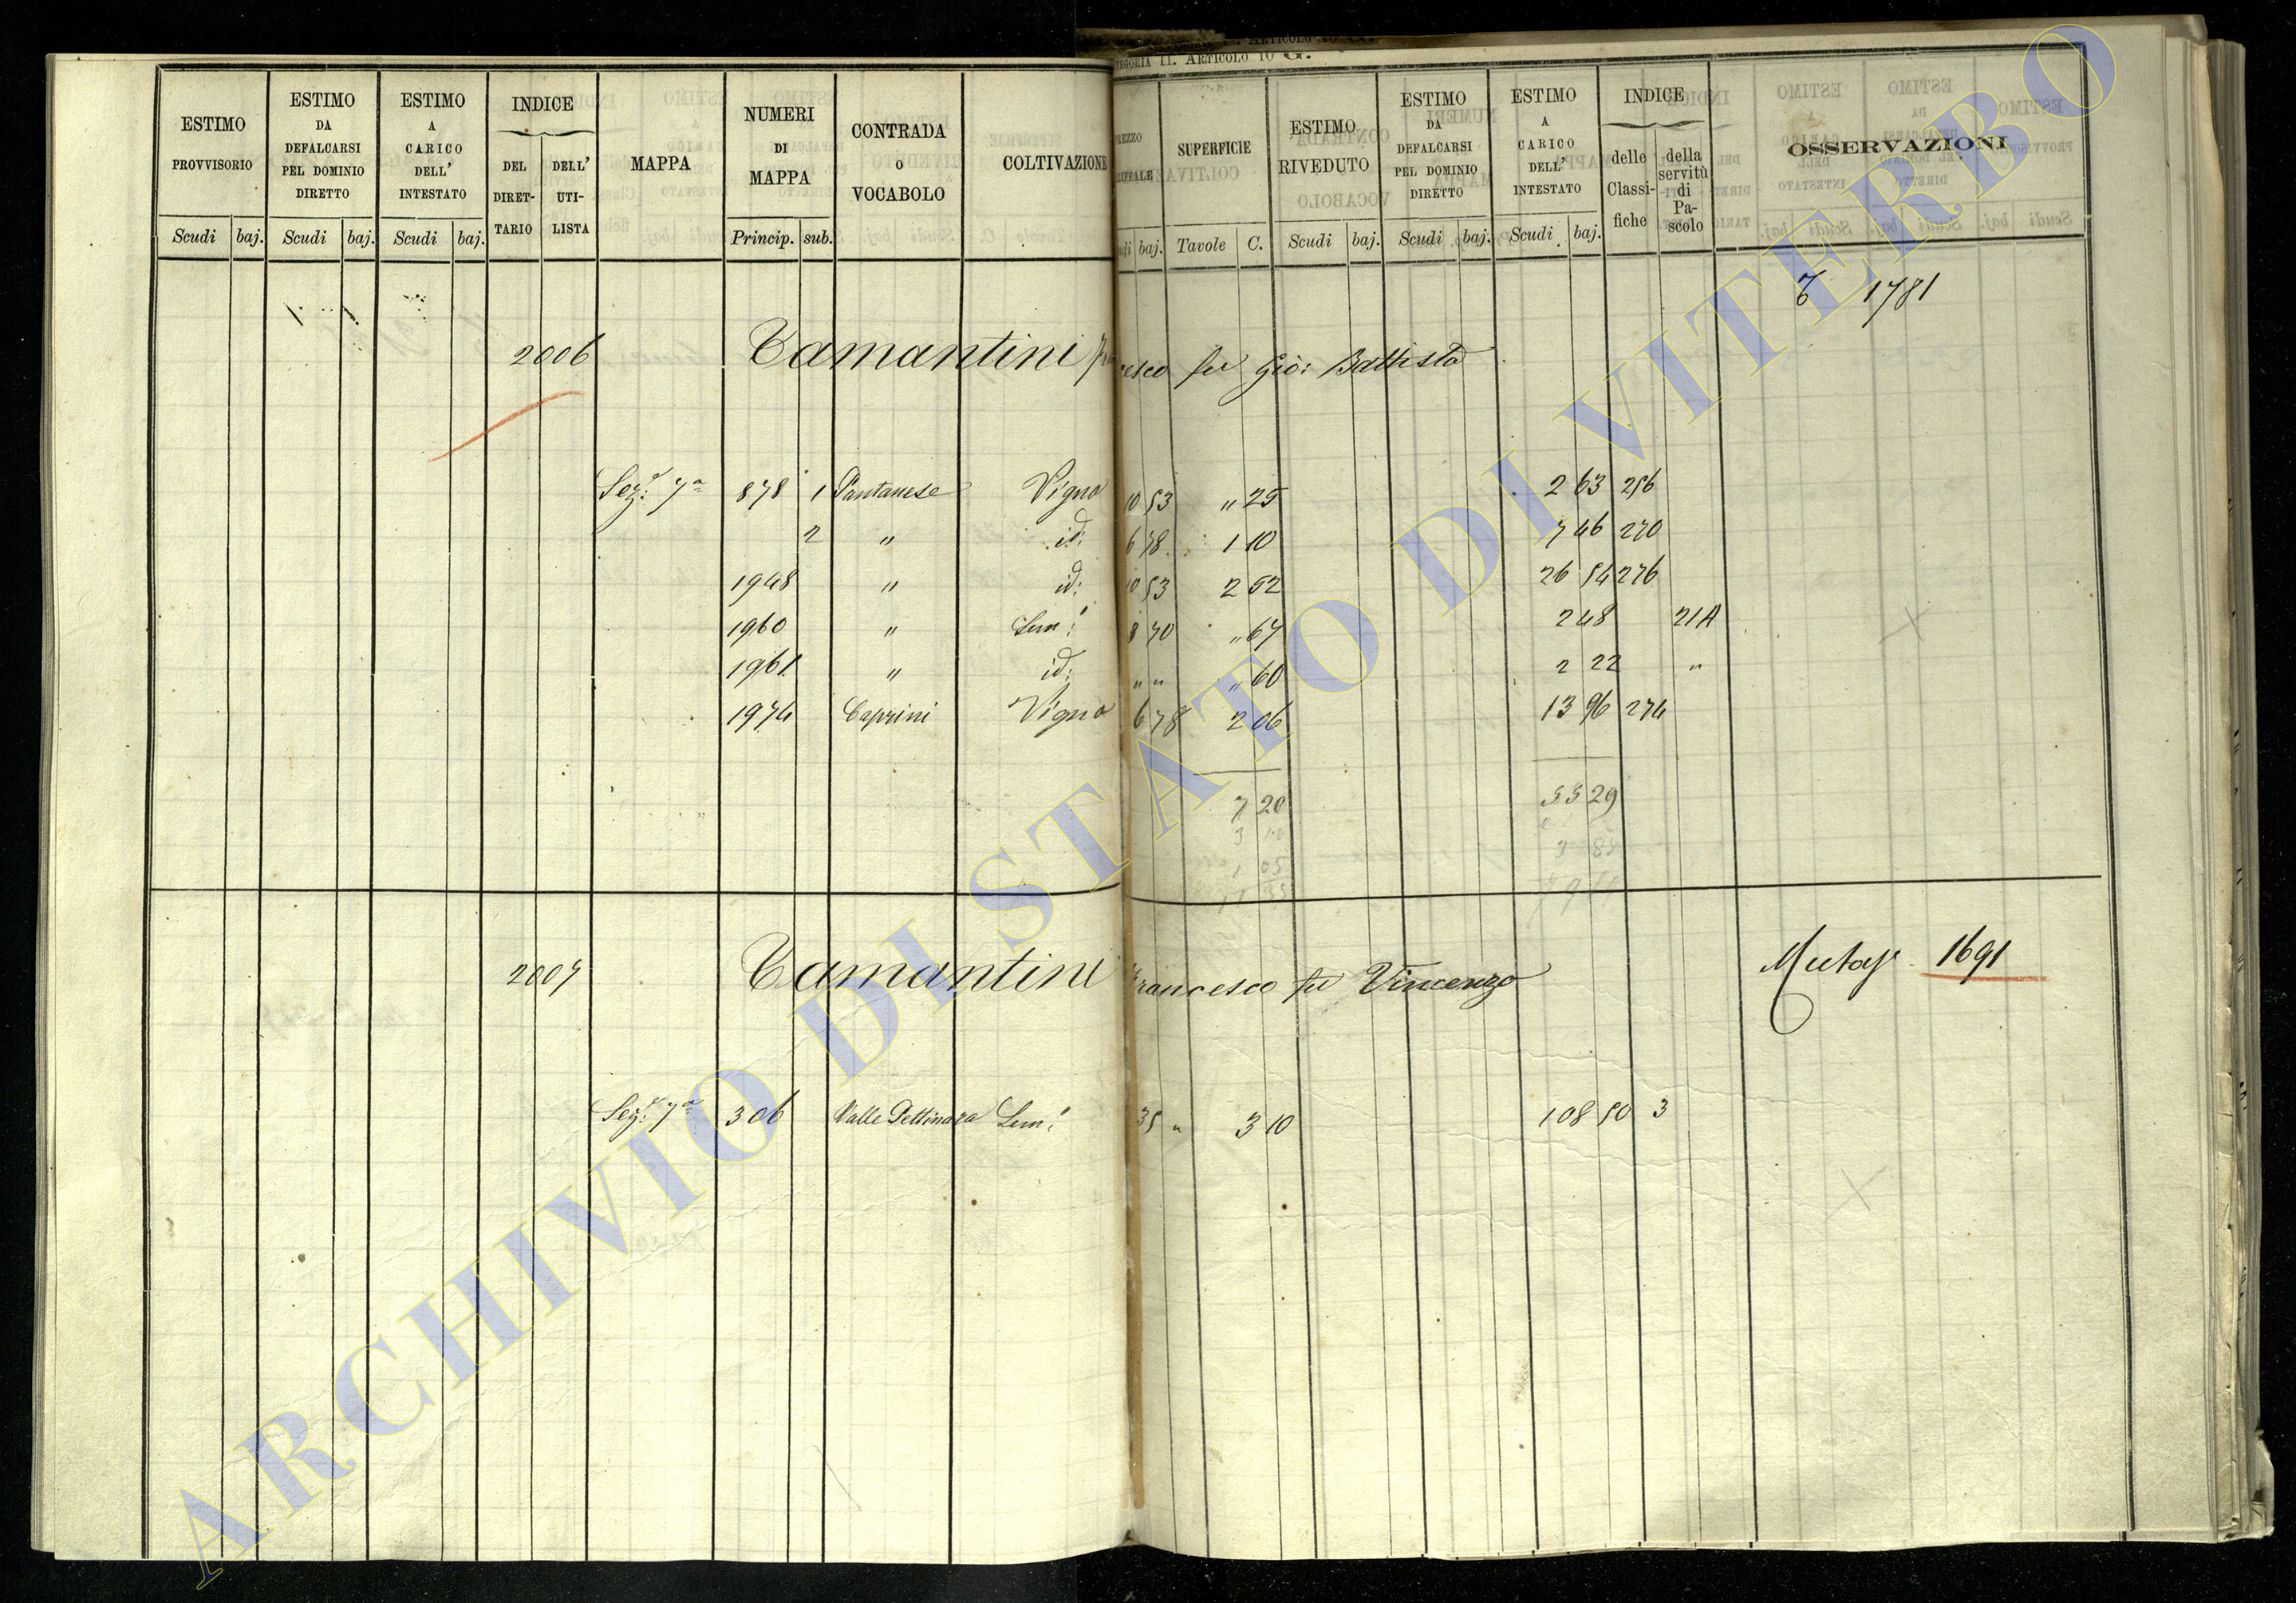 CATEGORIA II. ARTICOLO 10 G.
ESTIMO PROVVISORIO
ESTIMO DA DEFALCARSI PEL DOMINIO DIRETTO
ESTIMO A CARICO DELL' INTESTATO
INDICE
DEL DIRET-TARIO
DELL' UTI-LISTA
MAPPA
NUMERI DI MAPPA
CONTRADA o VOCABOLO
COLTIVAZIONE
SUPERFICIE
ESTIMO RIVEDUTO
ESTIMO DA DEFALCARSI PEL DOMINIO DIRETTO
ESTIMO A CARICO DELL' INTESTATO
INDICE
delle Classi-fiche
della servitù di Pa-scolo
OSSERVAZIONI
Scudi baj. Scudi baj. Scudi baj. Princip. sub. baj. Tavole C. Scudi baj. Scudi baj. Scudi baj.
1781
2006 Tamantini Francesco fu Gio: Battista
Sez: 7a 878 1 Pantanese Vigna 10 53 " 25 2 63 256
2 " id: 6 78 1 10 7 46 270
1948 " id: 10 53 2 52 26 54 276
1960 " Sem: 8 70 " 67 2 48 21A
1961 " id: " " " 60 2 22 "
1974 Caprini Vigna 6 78 2 06 13 96 274
7 20 55 29
2007 Tamantini Francesco fu Vincenzo 1691
Sez: 7a 306 Valle Pettinara Sem: 35 " 3 10 108 50 3
ARCHIVIO DI STATO DI VITERBO